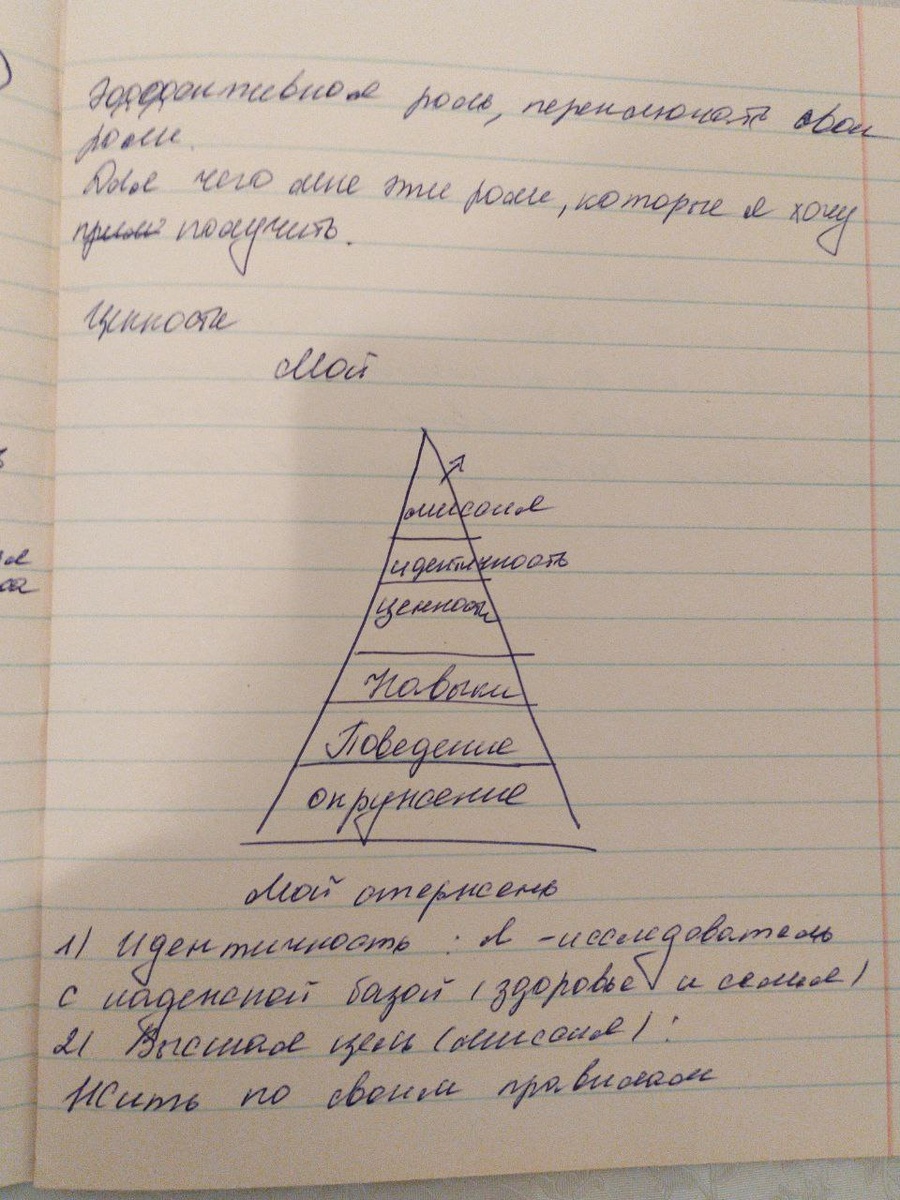 Эффективная роль, переключать свои
роли.
Для чего мне эти роли, которые я хочу
получить.
Ценности
Мой
миссия
идентичность
ценности
Навыки
Поведение
окружение
Мой стержень
1) Идентичность : Я - исследователь
с надежной базой (здоровье и семья)
2) Высшая цель (миссия) :
Жить по своим правилам